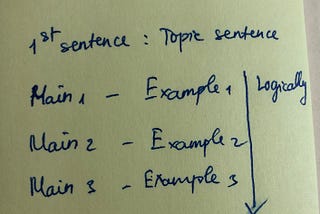 1st sentence : Topic sentence
Main 1 – Example 1
Main 2 – Example 2
Main 3 – Example 3
Logically